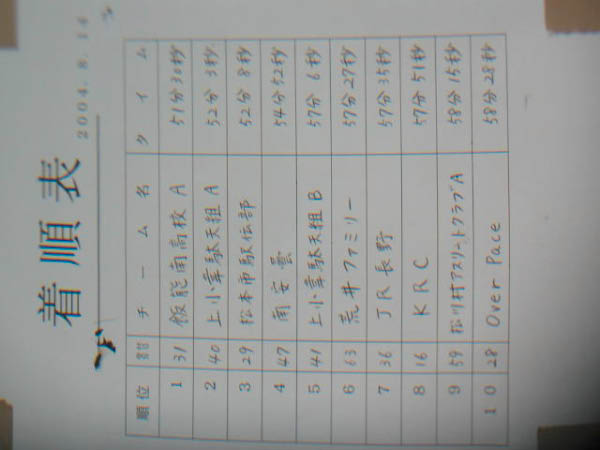 着順表
2004.8.14
順位 番付 チーム名 タイム
1 31 飯能南高校 A 51分30秒
2 40 上小韋駄天組 A 52分3秒
3 29 松本市駅伝部 52分8秒
4 47 南安曇 54分52秒
5 41 上小韋駄天組 B 57分6秒
6 63 荒井ファミリー 57分27秒
7 36 JR長野 57分35秒
8 16 KRC 57分51秒
9 59 松川村アスリートクラブA 58分15秒
10 28 Over Pace 58分28秒